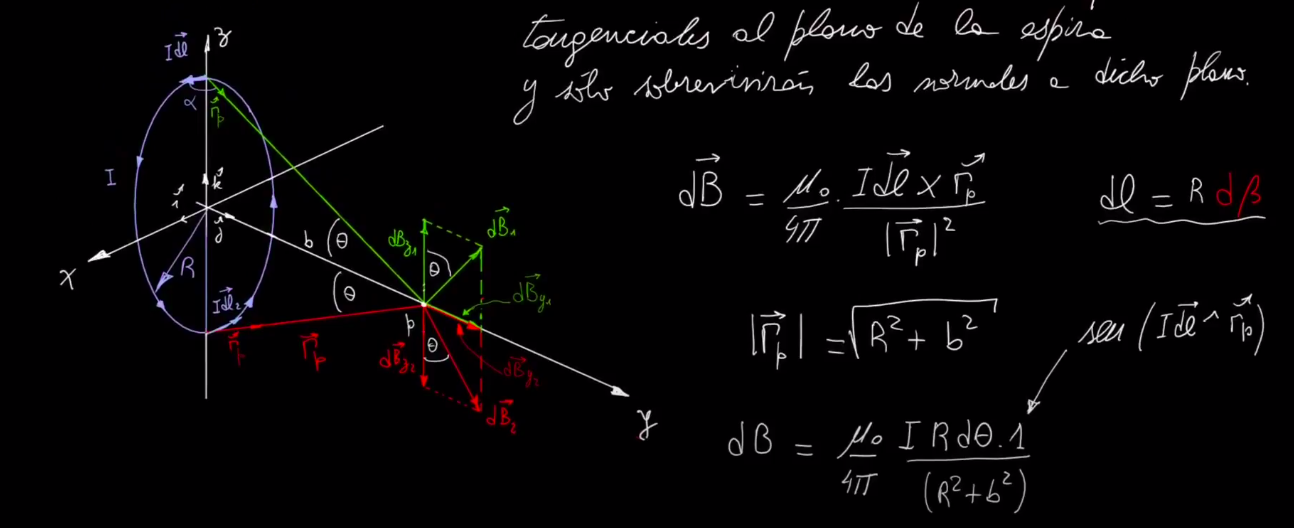 tangenciales al plano de la espira
y sólo sobrevivirán las normales a dicho plano.
z
I d\vec{l}
α
\vec{r}_p
I
\vec{i}
\vec{k}
\vec{j}
x
R
I d\vec{l}_2
b
θ
θ
\vec{r}_p
\vec{r}_p
p
dB_{z1}
d\vec{B}_1
θ
d\vec{B}_{y1}
θ
d\vec{B}_{z2}
d\vec{B}_{y2}
d\vec{B}_2
y
d\vec{B} = \frac{μ_0}{4π} · \frac{I d\vec{l} × \vec{r}_p}{|\vec{r}_p|^2}
dl = R dβ
|\vec{r}_p| = \sqrt{R^2 + b^2}
sen (I d\vec{l} ^ \vec{r}_p)
dB = \frac{μ_0}{4π} \frac{I R dθ . 1}{(R^2 + b^2)}